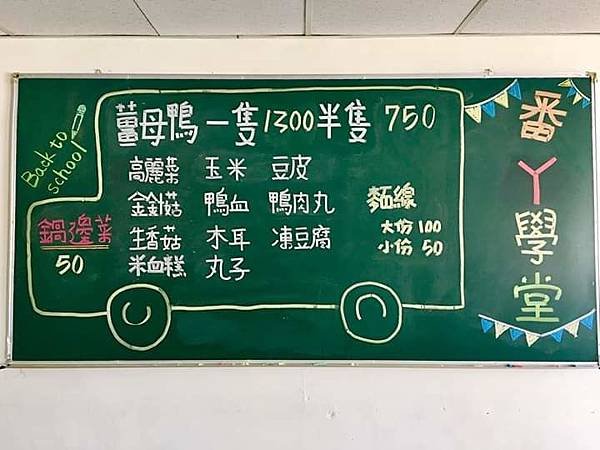 Back to
school
薑母鴨 一隻1300半隻 750
高麗菜 玉米 豆皮
金針菇 鴨血 鴨肉丸
生香菇 木耳 凍豆腐
米血糕 丸子
麵線
大份 100
小份 50
鍋邊菜
50
番丫學堂